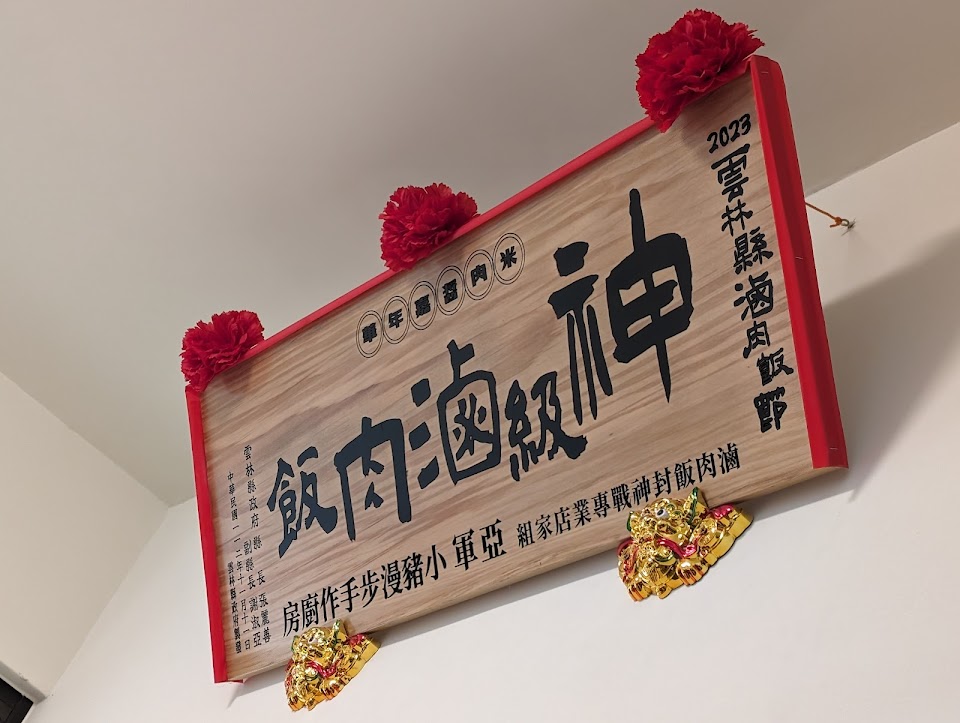 2023
雲林縣滷肉飯節
米肉醬嘉年華
神級滷肉飯
滷肉飯封神戰專業店家組 亞軍 小豬漫步手作廚房
雲林縣政府 縣長 張麗善
副縣長 謝淑亞
中華民國一一二年十一月十一日
雲林縣政府製發